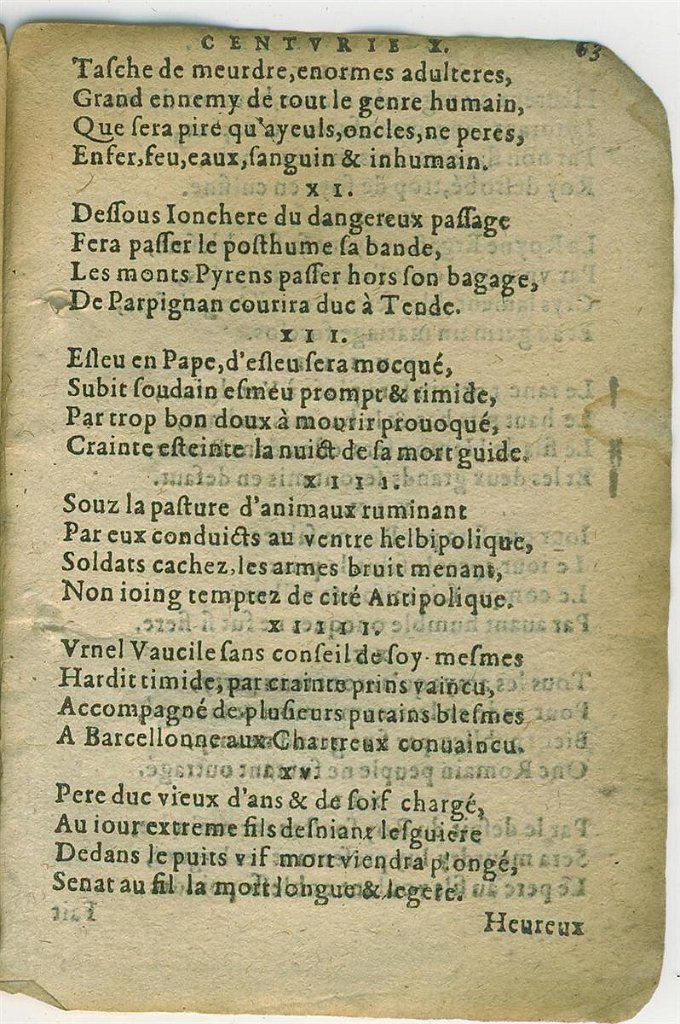 CENTVRIE X. 63
Taſche de meurdre,enormes adulteres,
Grand ennemy de tout le genre humain,
Que ſera pire qu'ayeuls,oncles,ne peres,
Enfer,feu,eaux,ſanguin & inhumain.
XI.
Deſſous Ionchere du dangereux paſſage
Fera paſſer le poſthume ſa bande,
Les monts Pyrens paſſer hors ſon bagage,
De Parpignan courira duc à Tende.
XII.
Eſleu en Pape,d'eſleu ſera mocqué,
Subit ſoudain eſmeu prompt & timide,
Par trop bon doux à mourir prouoqué,
Crainte eſteinte la nuict de ſa mort guide.
XIII.
Souz la paſture d'animaux ruminant
Par eux conduicts au ventre helbipolique,
Soldats cachez,les armes bruit menant,
Non ioing temptez de cité Antipolique.
XIIII.
Vrnel Vaucile ſans conſeil de ſoy meſmes
Hardit timide, par crainte prins vaincu,
Accompagné de pluſieurs putains bleſmes
A Barcellonne aux Chartreux conuaincu.
XV.
Pere duc vieux d'ans & de ſoif chargé,
Au iour extreme fils deſniant leſguiere
Dedans le puits vif mort viendra plongé,
Senat au fil la mort longue & legere.
Heureux